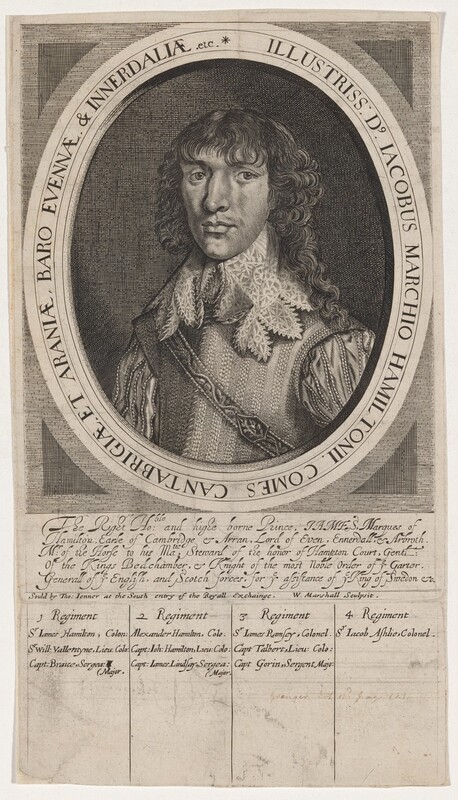 ILLUSTRISS: D⁹. IACOBUS MARCHIO HAMILTONII. COMES CANTABRIGIÆ ET ARANIÆ, BARO EVENNÆ, & INNERDALIÆ etc. *
The Right Ho:ble and highe borne Prince, IAMES Marques of
Hamilton, Earle of Cambridge & Arran, Lord of Even, Ennerdell & Aroth,
Mr. of the Horse to his Matie Steward of the honor of Hampton Court, Gentl:
Of the Kings Bedchamber, & Knight of the most Noble Order of ye Garter.
Generall of ye English, and Scotch forces, for ye assistance of ye King of Sweden &c.
Sould by Tho. Ienner at the South entry of the Royall Exchainge. W. Marshall Sculpsit.
1 Regiment
Sr Iames Hamilton, Colon:
Sr Will: Vallentyne, Lieu: Colo:
Capt: Braice, Sergea: Major.
2 Regiment
Alexander Hamilton, Colo.
Capt: Ioh: Hamilton, Lieu: Colo:
Capt: Iames Lindsay, Sergea: Major.
3 Regiment
Sr Iames Ramsey, Colonel.
Capt Talbert, Lieu: Colo:
Capt Gorin, Sergent Major
4 Regiment
Sr Iacob Ashlie, Colonel.